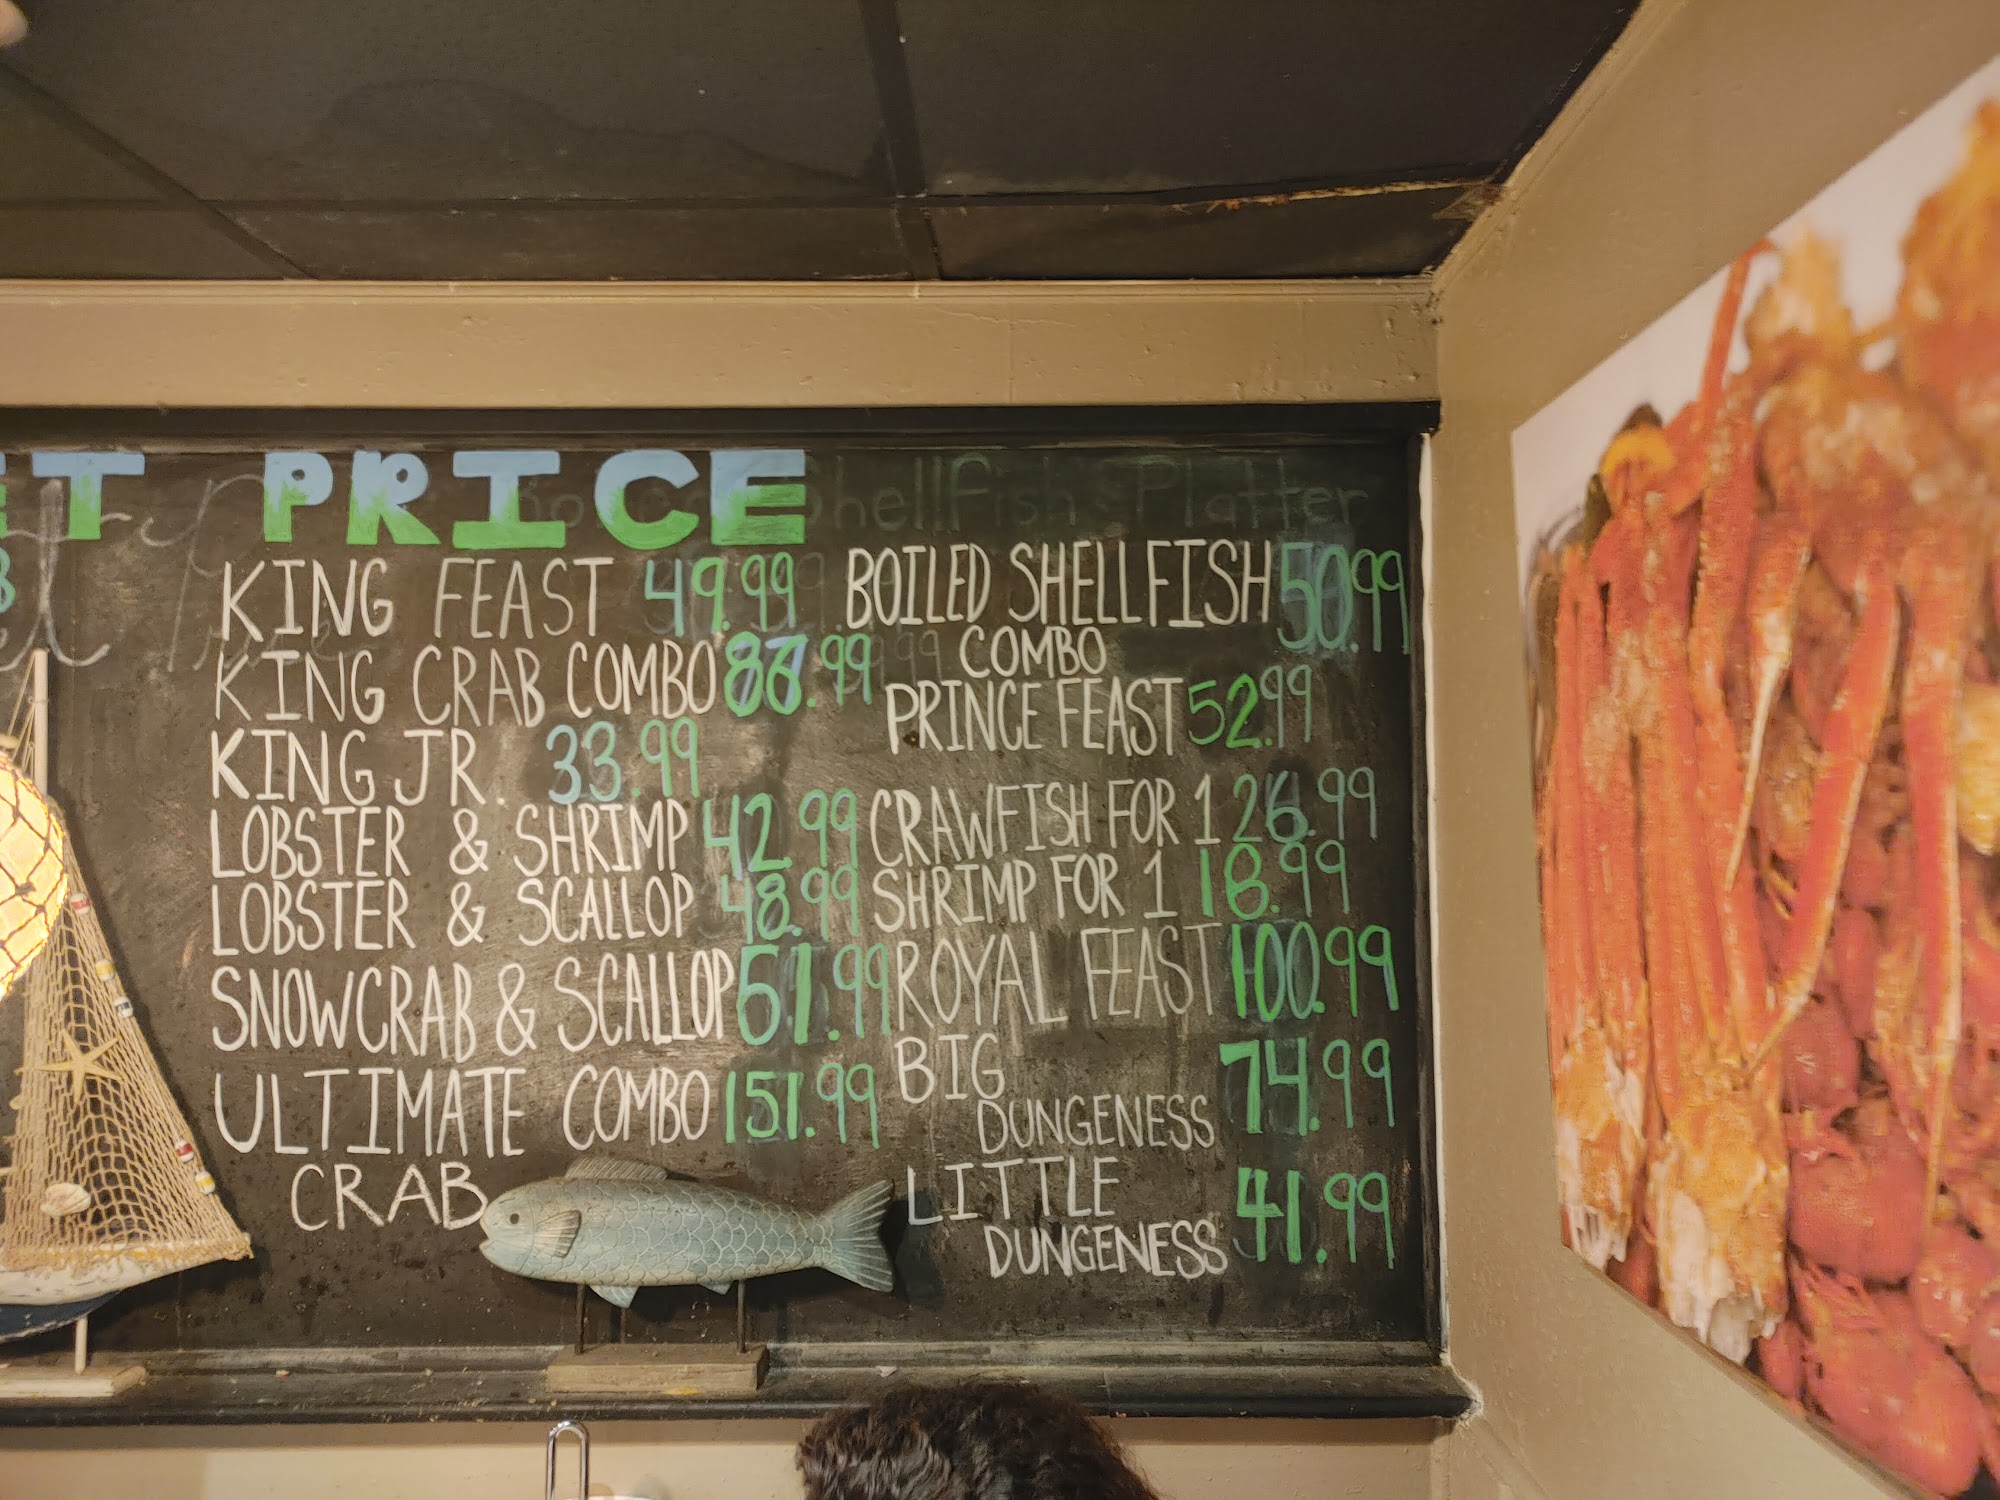 ET PRICE
KING FEAST 49.99
KING CRAB COMBO .99
KING JR. 33.99
LOBSTER & SHRIMP 42.99
LOBSTER & SCALLOP 48.99
SNOWCRAB & SCALLOP 61.99
ULTIMATE COMBO 151.99
CRAB
ShellFish Platter
BOILED SHELLFISH 50.99
COMBO
PRINCE FEAST 52.99
CRAWFISH FOR 1 26.99
SHRIMP FOR 1 18.99
ROYAL FEAST 100.99
BIG 74.99
DUNGENESS
LITTLE 41.99
DUNGENESS